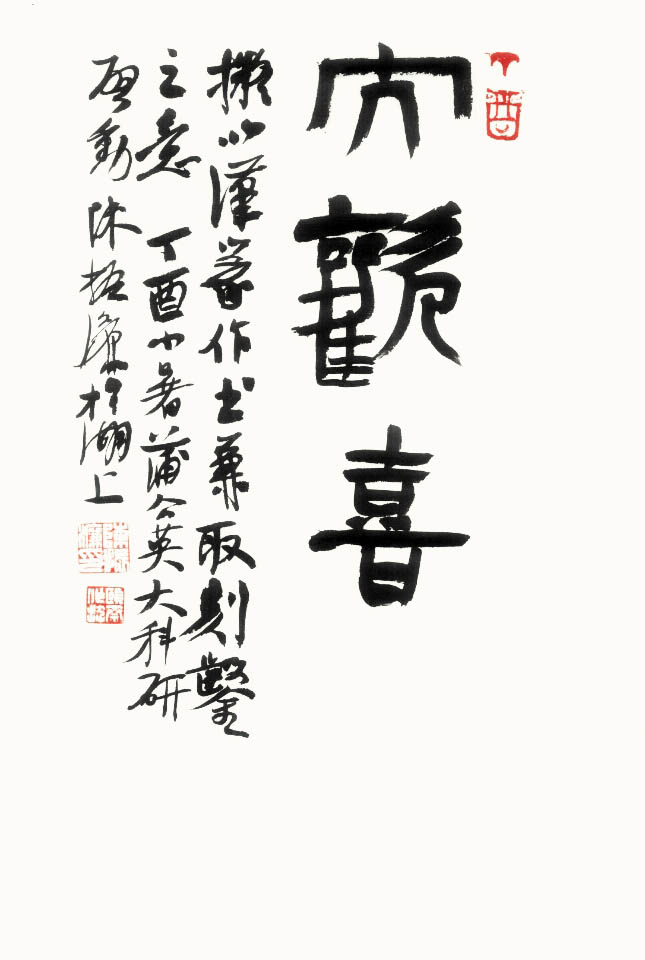 丁酉
大歡喜
擬以漢篆作書兼取刻鑿
之意 丁酉小暑蒲公英大科研
啟動 陳振濂於湖上